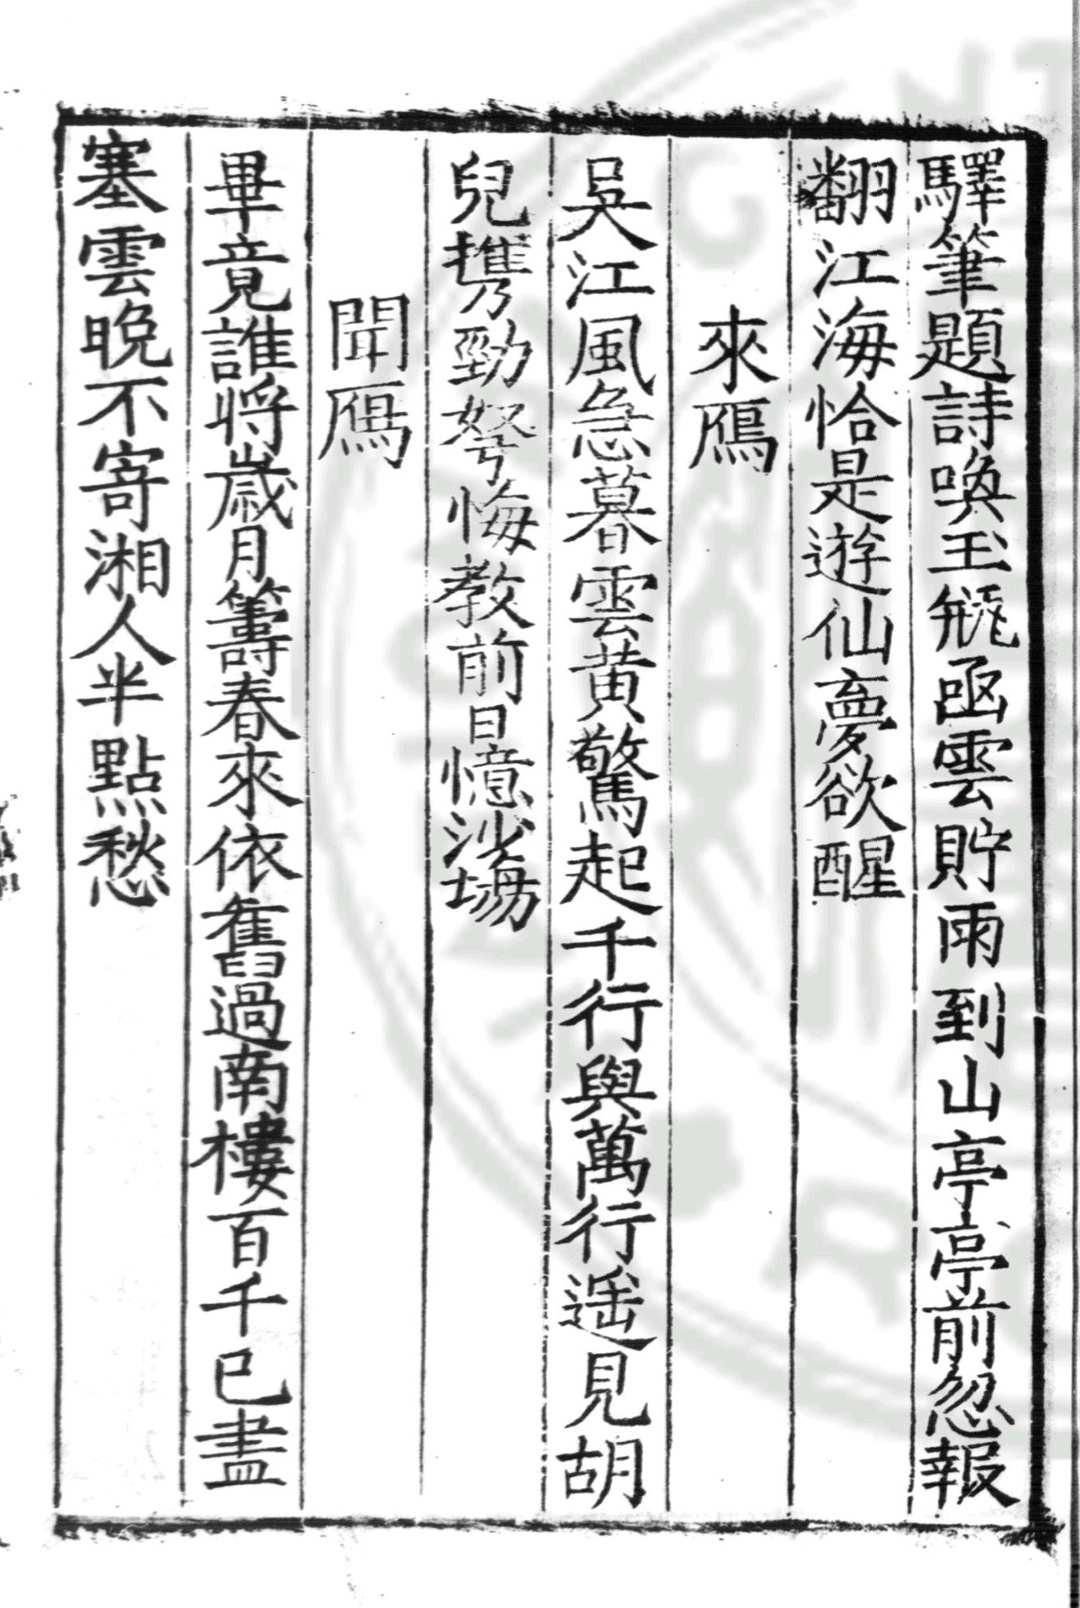 驛筆題詩喚玉瓶函雲貯雨到山亭亭前忽報
翻江海恰是遊仙夢欲醒
來鴈
吳江風急暮雲黃驚起千行與萬行遥見胡
兒携勁弩悔教前日憶沙場
聞鴈
畢竟誰將歲月籌春來依舊過南樓百千已盡
塞雲晚不寄湘人半點愁